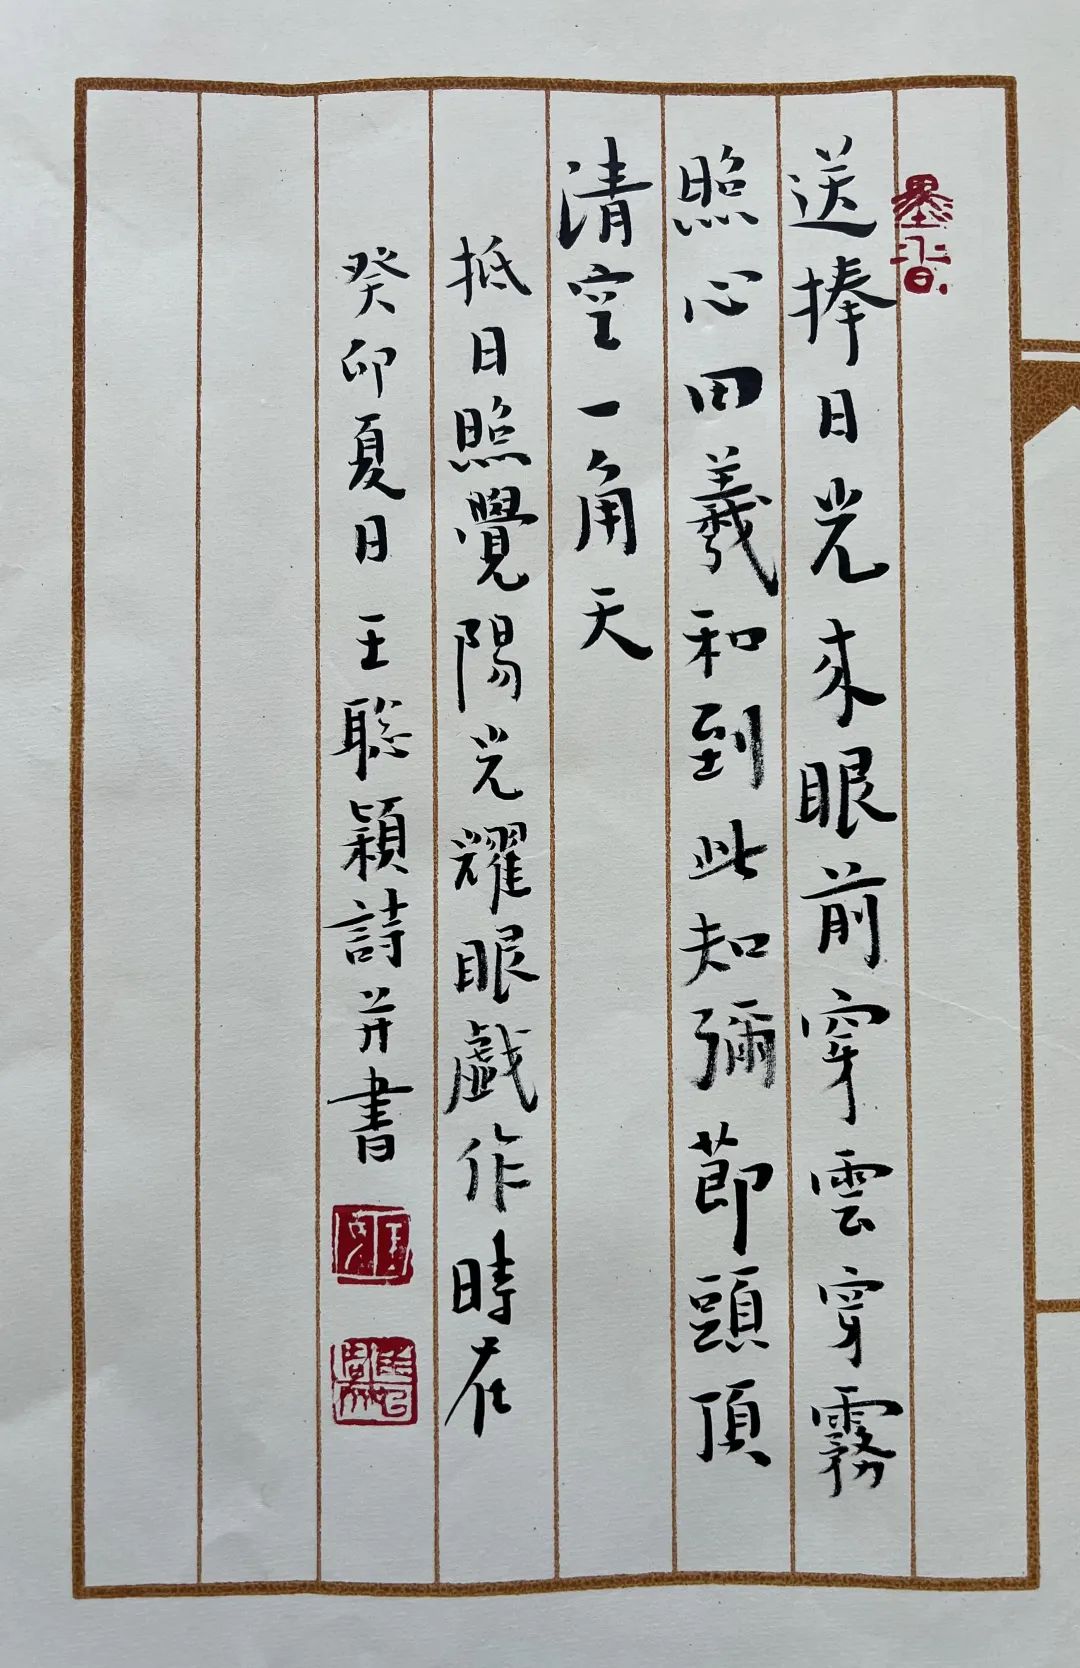 墨香
送捧日光來眼前穿雲穿霧
照心田羲和到此知彌節頭頂
清空一角天
抵日照覺陽光耀眼戲作時在
癸卯夏日王聰穎詩并書